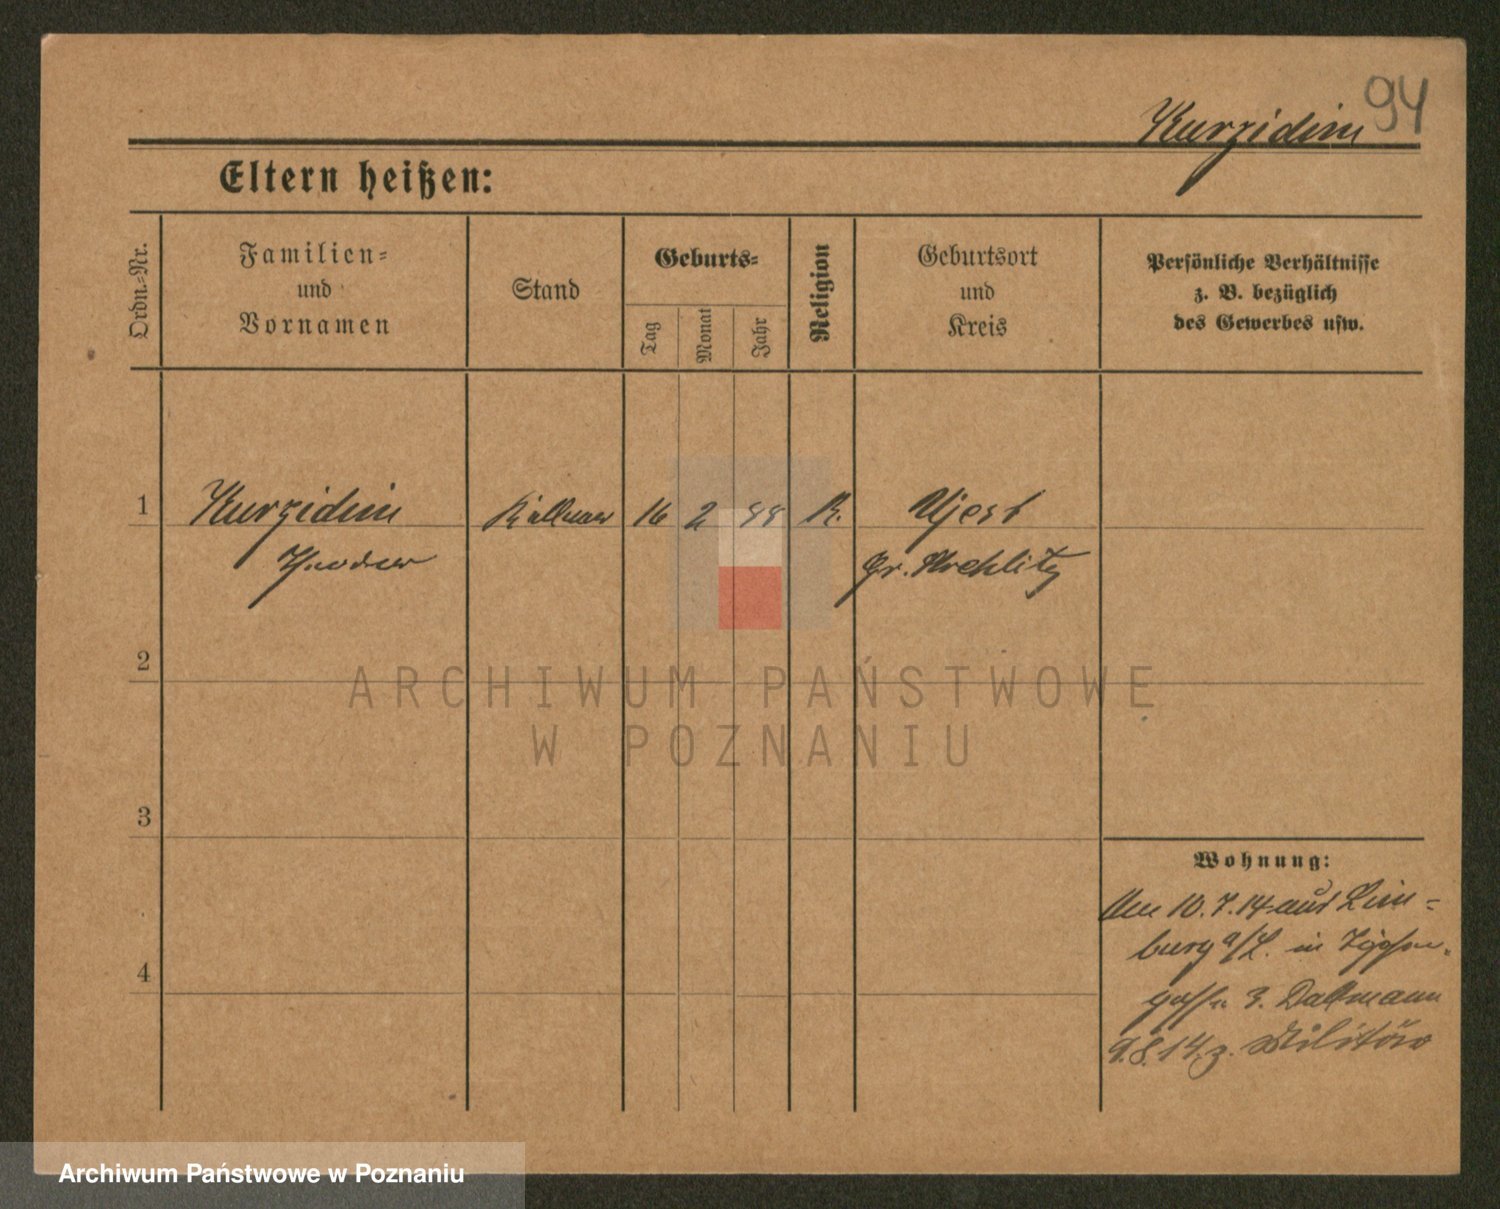 94
Kurzidim
Eltern heißen:
Ordn.=Nr.
Familien=
und
Vornamen
Stand
Geburts=
Tag
Monat
Jahr
Religion
Geburtsort
und
Kreis
Persönliche Verhältnisse
z. B. bezüglich
des Gewerbes usw.
1
Kurzidim
Kellner
16
2
88
K.
Ujest
Theodor
Gr. Strehlitz
2
ARCHIWUM PAŃSTWOWE
W POZNANIU
3
Wohnung:
Am 10.7.14 aus Lim=
burg a/L. in
gasse 3. Dallmann
9.8.14. z. Militär
4
Archiwum Państwowe w Poznaniu